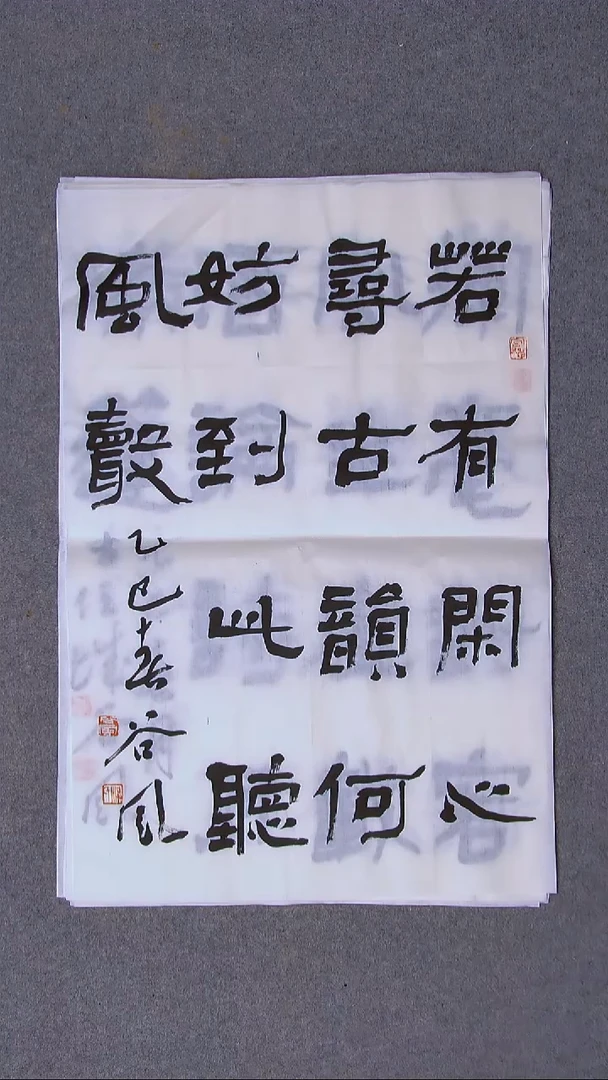 若有閑心
尋古韻何
妨到此聽
風聲
乙巳春谷風